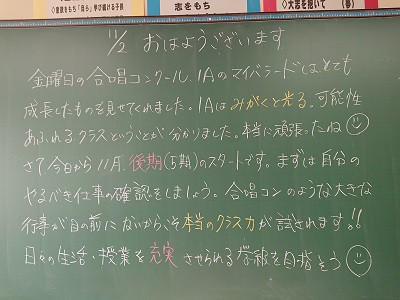 志をもち
大志を抱いて
11/2 おはようございます
金曜日の合唱コンクール、1Aのマイバラードはとても
成長したものを見せてくれました。1Aはみがくと光る、可能性
あふれるクラスということが分かりました。本当に頑張ったね
さて、今日から11月、後期(5期)のスタートです。まずは自分の
やるべき仕事の確認をしましょう。合唱コンのような大きな
行事が目の前にないからこそ本当のクラス力が試されます!!
日々の生活・授業を充実させられる学級を目指そう